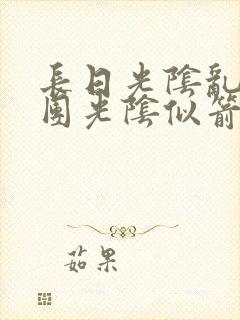 長日光陰亂
團光陰似箭
茹果